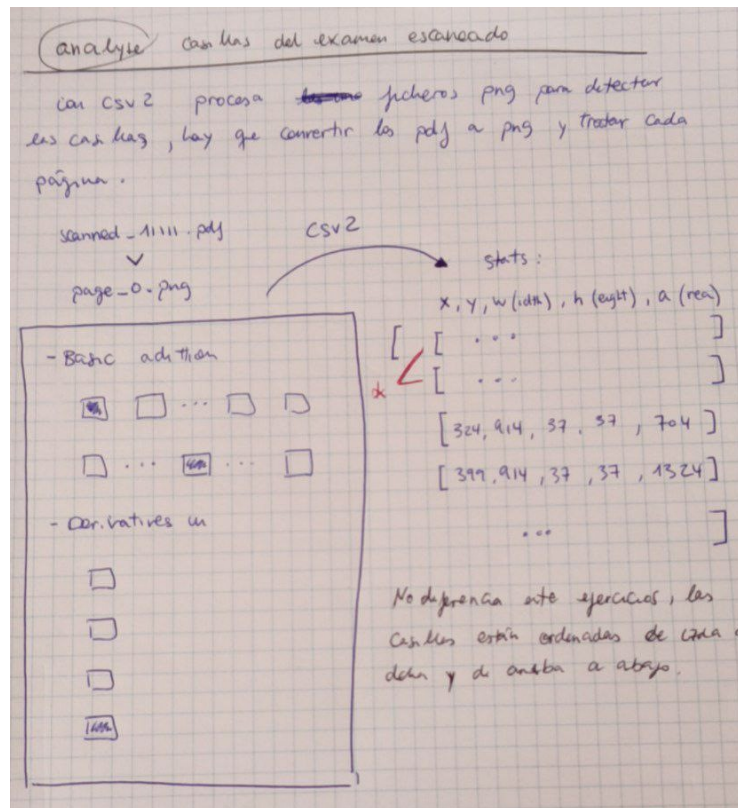 analyse casillas del examen escaneado
con csv2 procesa ficheros png para detectar
las casillas, hay que convertir los pdf a png y tratar cada
página.
scanned_11111.pdf
csv2
page_0.png
stats:
x, y, w(idth), h(eight), a(rea)
[ [ ... ]
[ ... ]
*
[324, 914, 37, 37, 704]
[399, 914, 37, 37, 1324]
... ]
- Basic adition
...
... ...
- Derivatives un
No diferencia ente ejercicios, las
casillas están ordenadas de izda a
dcha y de arriba a abajo.